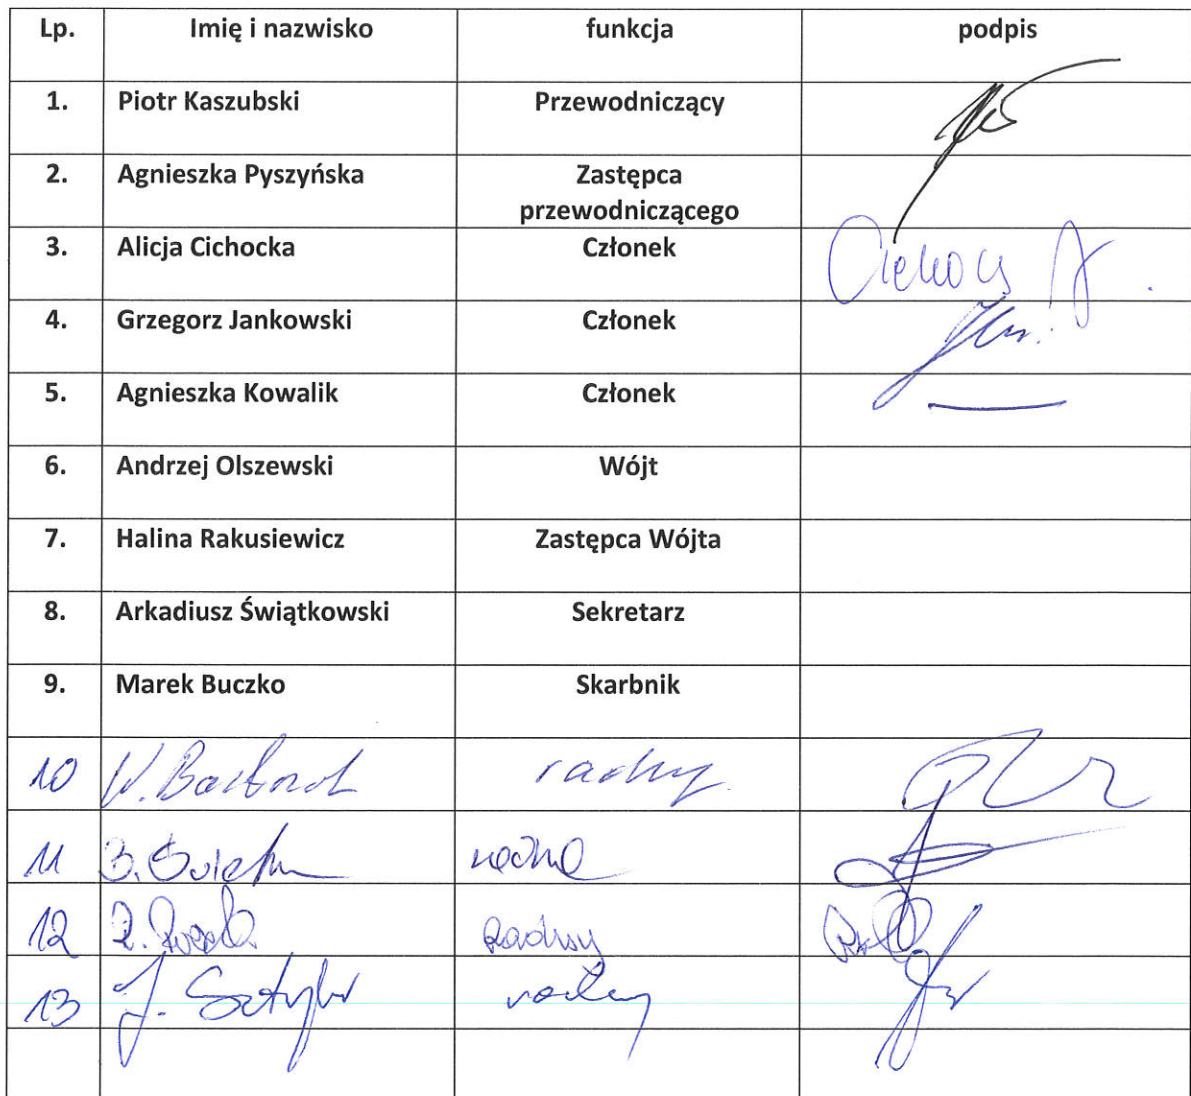 Lp. Imię i nazwisko funkcja podpis
1. Piotr Kaszubski Przewodniczący
2. Agnieszka Pyszyńska Zastępca
przewodniczącego
3. Alicja Cichocka Członek
4. Grzegorz Jankowski Członek
5. Agnieszka Kowalik Członek
6. Andrzej Olszewski Wójt
7. Halina Rakusiewicz Zastępca Wójta
8. Arkadiusz Świątkowski Sekretarz
9. Marek Buczko Skarbnik
10 radny
11 radna
12 radny
13 J. radny